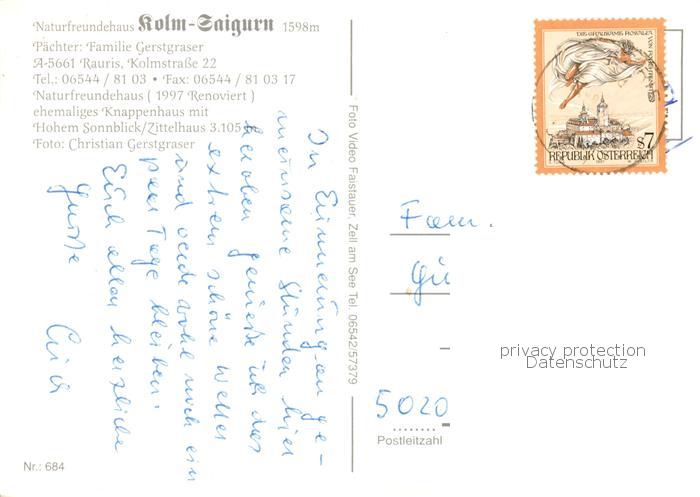 Naturfreundehaus Kolm-Saigurn 1598m
Pächter: Familie Gerstgraser
A-5661 Rauris, Kolmstraße 22
Tel.: 06544 / 81 03 • Fax: 06544 / 81 03 17
Naturfreundehaus ( 1997 Renoviert )
ehemaliges Knappenhaus mit
Hohem Sonnblick/Zittelhaus 3.105
Foto: Christian Gerstgraser
In Erinnerung an ge-
meinsame Stunden hier
heroben genieße ich das
extrem schöne Wetter
und werde wohl noch ein
paar Tage bleiben.
Euch allen herzliche
Grüße
Nr.: 684
Foto Video Faistauer, Zell am See Tel. 06542/57379
DIE GRAUSAME ROSALIA VON FORCHTENSTEIN
S7
REPUBLIK ÖSTERREICH
Fam.
Gü
privacy protection
Datenschutz
5020
Postleitzahl